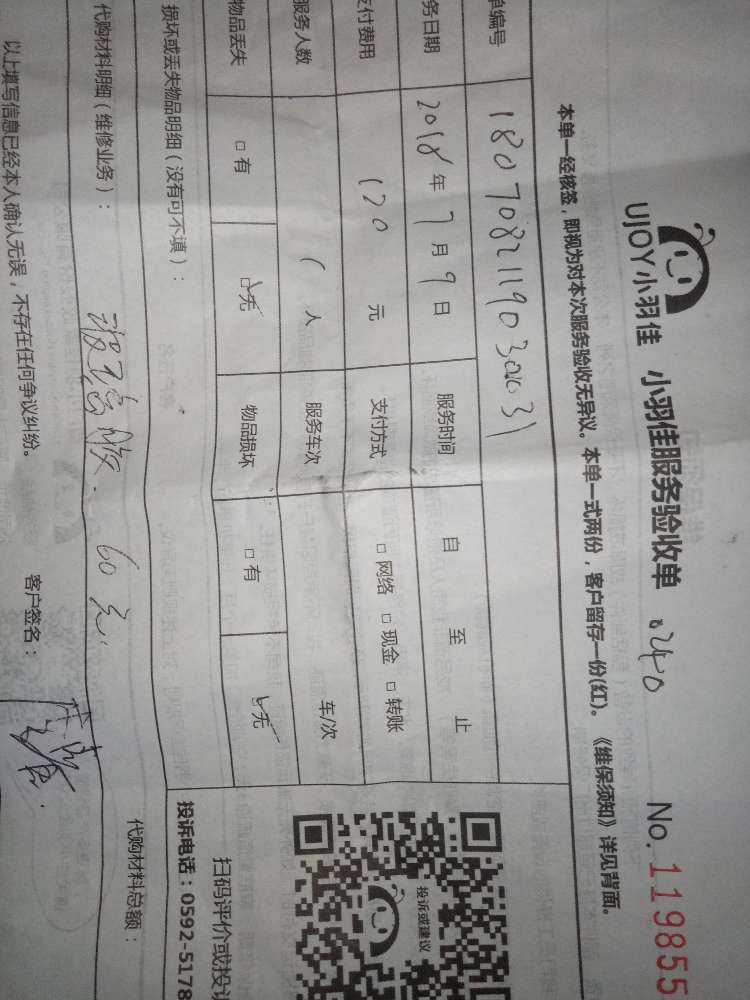 UJOY小羽佳 小羽佳服务验收单 No.119855
本单一经核签，即视为对本次服务验收无异议。本单一式两份，客户留存一份(红)。《维保须知》详见背面。
单编号
务日期 2018年7月9日 服务时间 自 至 止
支付费用 120元 支付方式 □网络 □现金 □转账
服务人数 1人 服务车次 车/次
物品丢失 □有 □无 物品损坏 □有 □无
损坏或丢失物品明细（没有可不填）：
代购材料明细（维修业务）： 玻璃胶. 60元. 代购材料总额：
以上填写信息已经本人确认无误，不存在任何争议纠纷。 客户签名：
投诉或建议
扫码评价或投
投诉电话：0592-5178